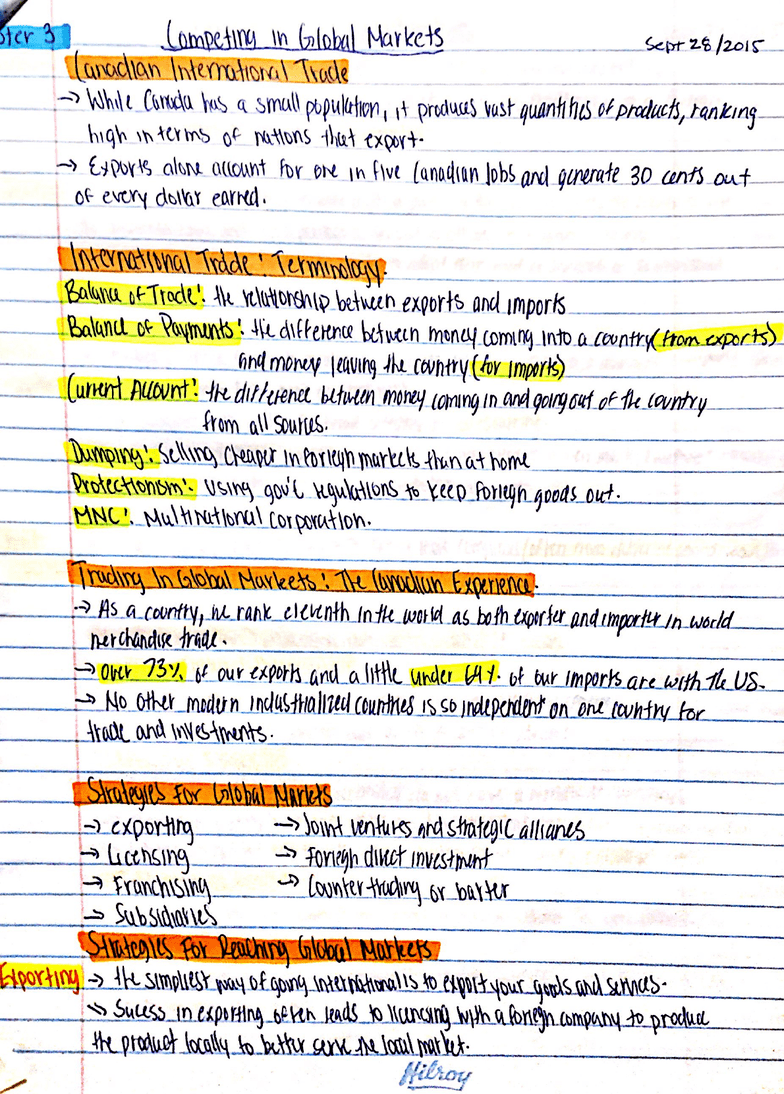 ter 3
Competing in Global Markets
Sept 28/2015
Canadian International Trade
→ While Canada has a small population, it produces vast quantities of products, ranking
high in terms of nations that export.
→ Exports alone account for one in five Canadian Jobs and generate 30 cents out
of every dollar earned.
International Trade: Terminology.
Balance of Trade: the relationship between exports and imports
Balance of Payments: the difference between money coming into a country (from exports)
and money leaving the country (for imports)
Current Account: the difference between money coming in and going out of the country
from all sources.
Dumping: Selling Cheaper in foriegn markets than at home
Protectionism: Using gov't regulations to keep foriegn goods out.
MNC: Multinational Corporation.
Trading In Global Markets: The Canadian Experience
→ As a country, we rank eleventh in the world as both exporter and importer in world
merchandise trade.
→ Over 73% of our exports and a little under 64% of our imports are with the US.
→ No other modern industrialized countries is so independent on one country for
trade and investments.
Strategies For Global Markets
→ exporting → Joint ventures and strategic allianes
→ Licensing → Foriegh direct investment
→ Franchising → Counter trading or barter
→ Subsidiaries
Strategies For Reaching Global Markets
Exporting → the simpliest way of going international is to export your goods and services.
→ Sucess in exporting often leads to licencing with a foriegn company to produce
the product locally to better serve the local market.
Hilroy